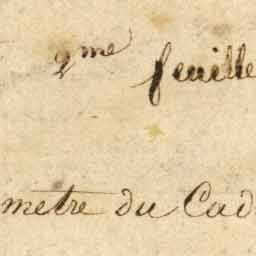 2me feuille
metre du Cad